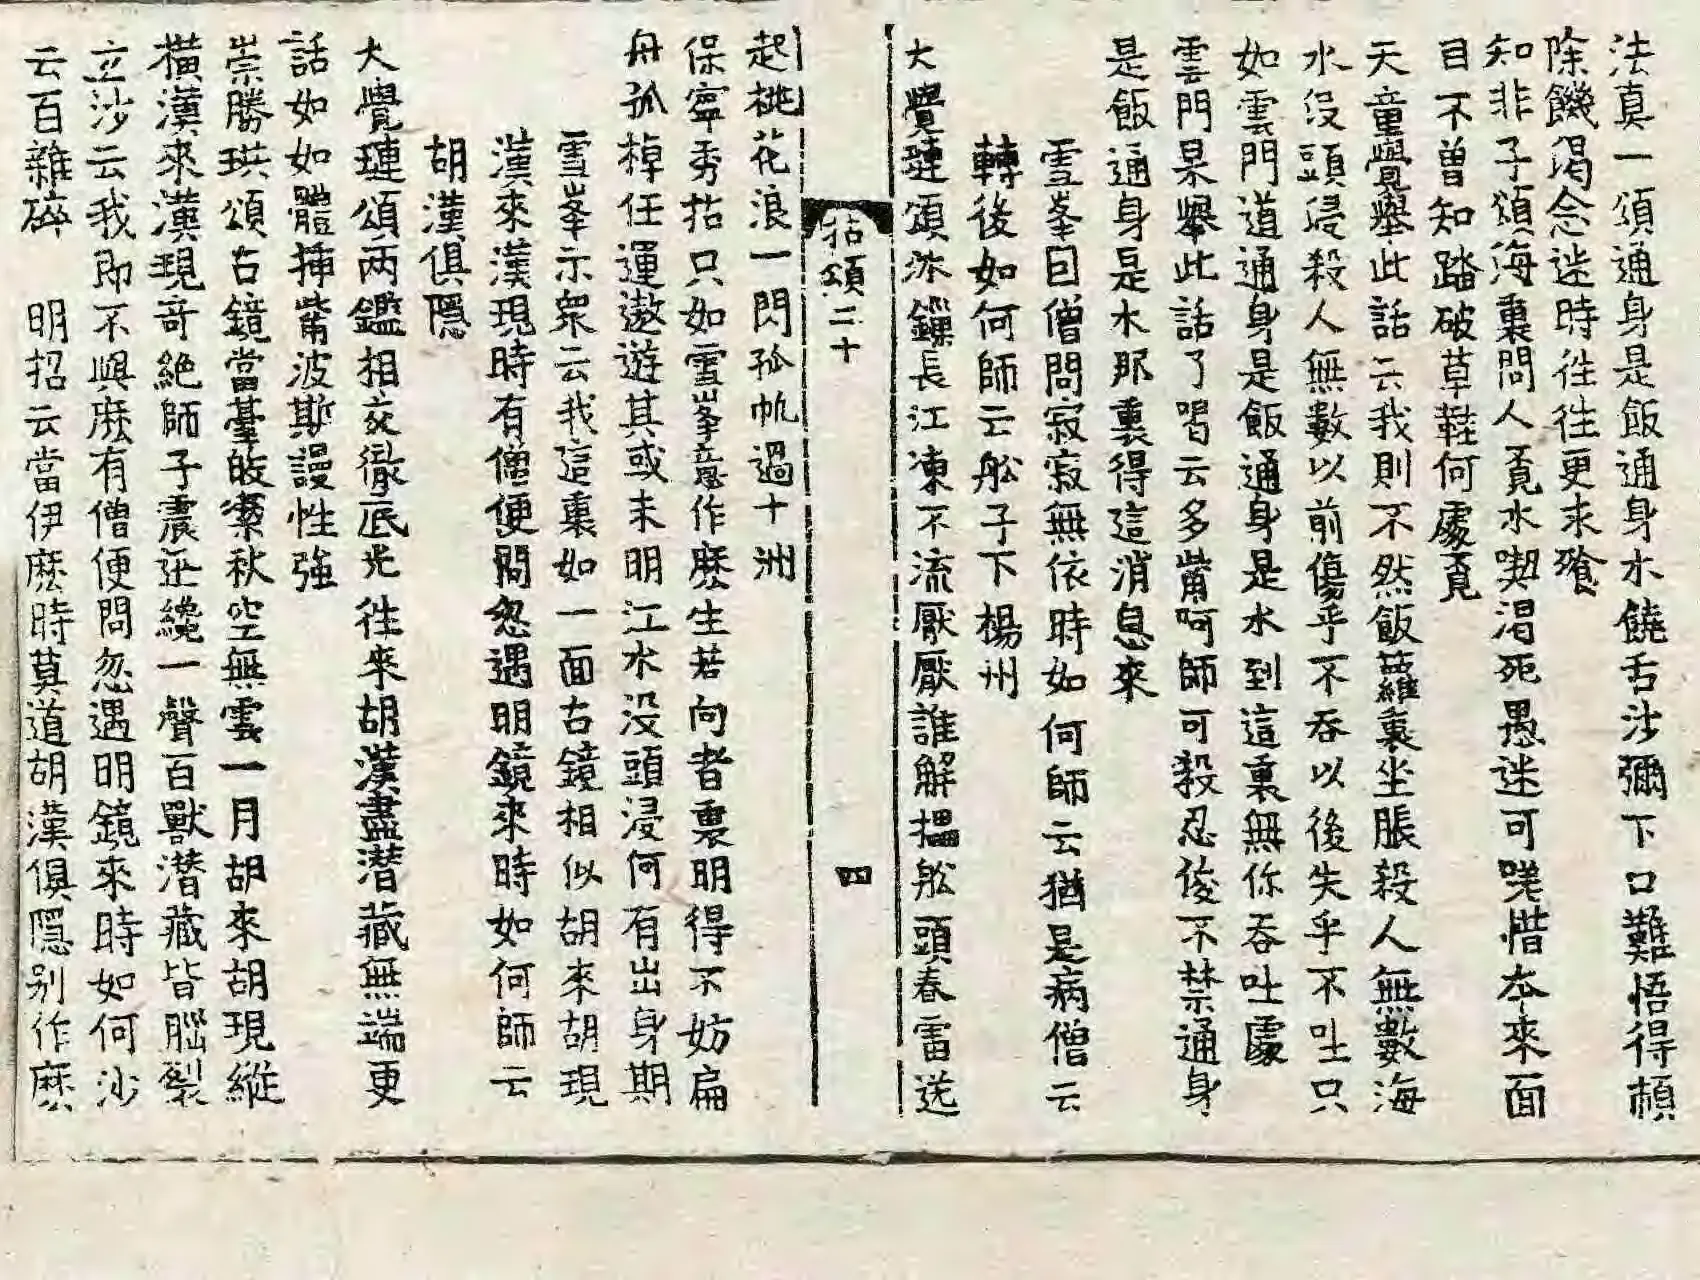 法真一頌通身是飯通身水饒舌沙彌下口難悟得頓
除饑渴念迷時徃徃更求飱
知非子頌海裏問人覔水喫渴死愚迷可嗟惜夲來面
目不曾知踏破草鞋何處覔
天童覺舉此話云我則不然飯蘿裏坐脹殺人無數海
水没頭浸殺人無數以前傷乎不吞以後失乎不吐只
如雲門道通身是飯通身是水到這裏無你吞吐處
雲門杲舉此話了喝云多觜呵師可殺忍俊不禁通身
是飯通身是水那裏得這消息來
雪峯因僧問寂寂無依時如何師云猶是病僧云
轉後如何師云舩子下楊州
大覺璉頌派鏁長江凍不流厭厭誰解搵舩頭春雷送
拈頌二十
四
起桃花浪一閃孤帆過十洲
保寧秀拈只如雪峯恁作麽生若向者裏明得不妨扁
舟孤棹任運遨遊其或未明江水没頭浸何有出身期
雪峯示衆云我這裏如一面古鏡相似胡來胡現
漢來漢現時有僧便問忽遇明鏡來時如何師云
胡漢俱隱
大覺璉頌兩鑑相交徹底光徃來胡漢盡潜藏無端更
話如如體揷觜波斯謾性強
崇勝珙頌古鏡當臺皎潔秋空無雲一月胡來胡現縱
橫漢來漢現奇絶師子震返纔一聲百獸潜藏皆腦裂
立沙云我即不與麽有僧便問忽遇明鏡來時如何沙
云百雜碎 明招云當伊麽時莫道胡漢俱隱别作麽